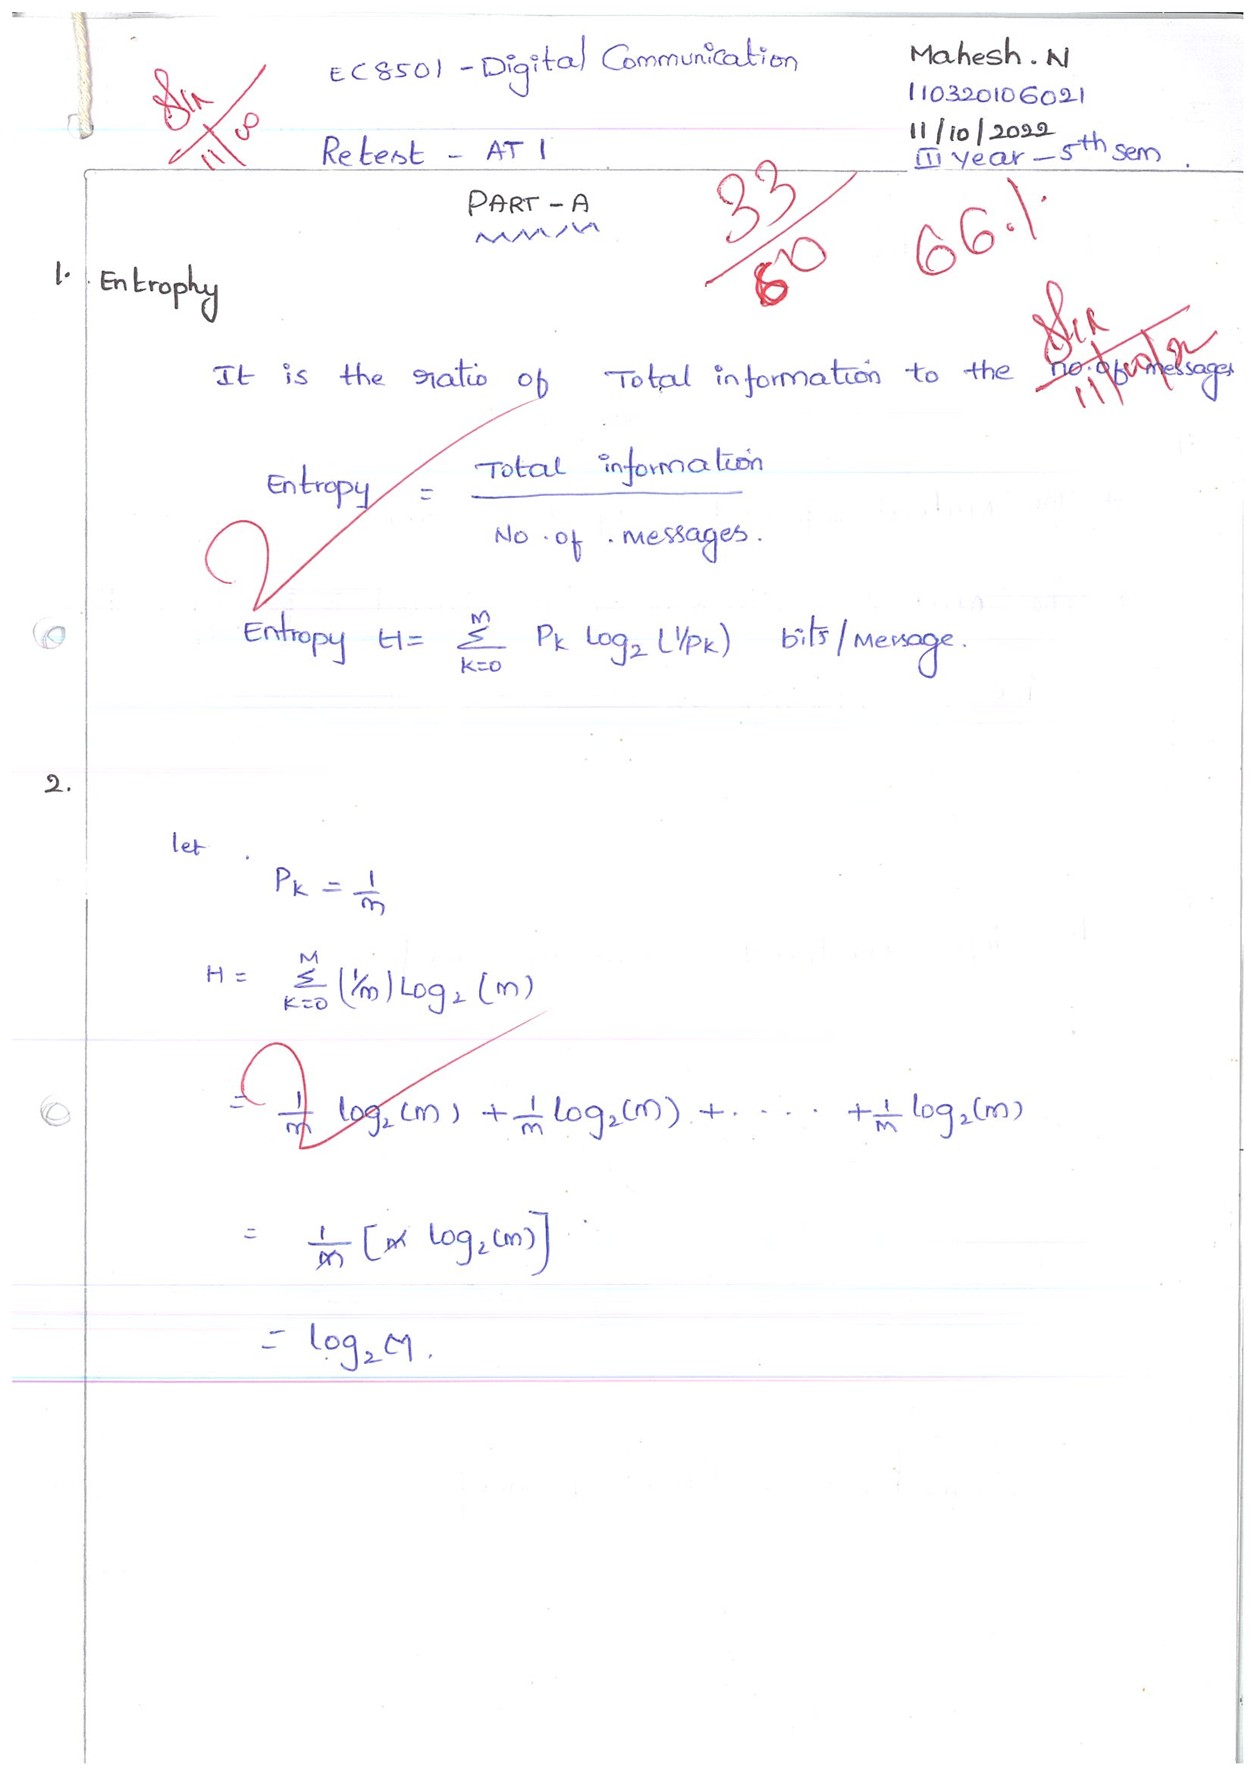 EC8501 - Digital Communication
Mahesh. N
110320106021
11/10/2022
Retest - AT 1
III year - 5th sem.
PART - A
33/50
66%
1. Entrophy
It is the ratio of Total information to the no. of messages
11/10/22
Entropy = Total information / No. of. messages.
Entropy H = M Σ k=0 Pk log2 (1/pk) bits/Message.
2.
let
Pk = 1/m
H = M Σ K=0 (1/m) Log2 (m)
= 1/m log2(m) + 1/m log2(m) + . . . . + 1/m log2(m)
= 1/m [m log2(m)]
= log2 M.